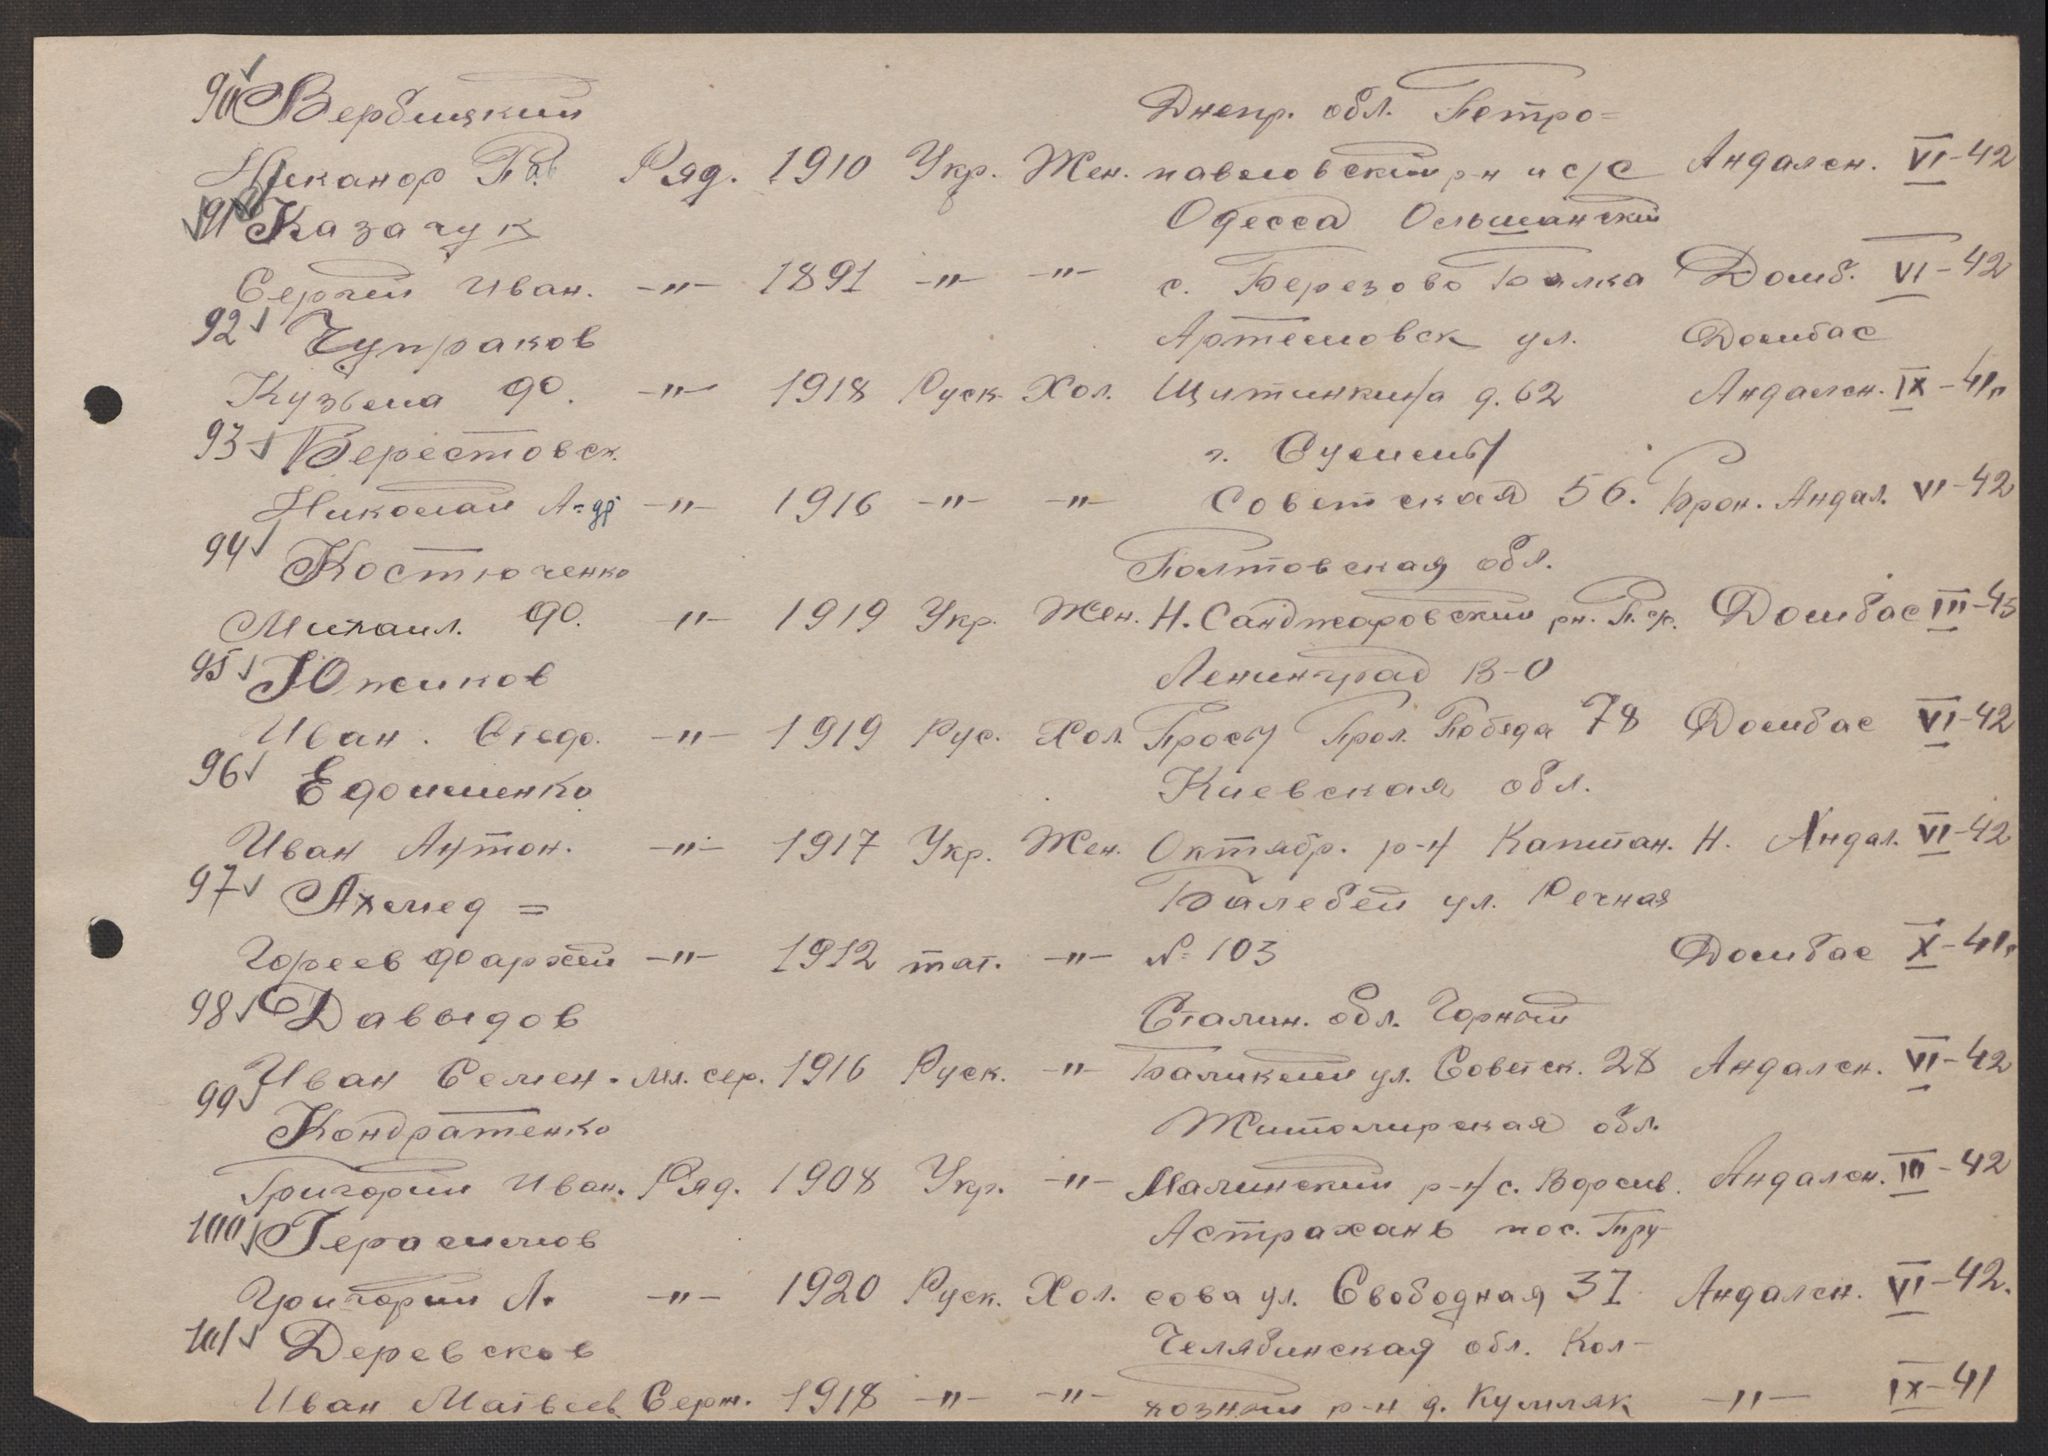 90 Вербицкий Днепр. обл. Петро=
Никанор Пав Ряд. 1910 Укр. Жен. павловский р-н и с/с Андалсн. VI-42
91 Казачук Одесса Ольшанский
Сергей Иван. -"- 1891 -"- -"- с. Березово Балка Домб. VI-42
92 Чупраков Артемовск ул. Домбас
Кузьма Ф. -"- 1918 Руск. Хол. д. 62 Андалсн. IX-41г
93 Верестовск. г. Сумы
Николай А-др -"- 1916 -"- -"- Советская 56. Брон. Андал. VI-42
94 Костюченко Полтовская обл.
Михаил. Ф. -"- 1919 Укр. Жен. Н. Санджаровский рн. Домбас III-45
95 Южиков Ленинград В-О
Иван. Стеф. -"- 1919 Рус. Хол. Прол. Победа 78 Домбас VI-42
96 Едошенко Киевская обл.
Иван Антон. -"- 1917 Укр. Жен. Октябр. р-н Капитан. Н. Андал. VI-42
97 Ахмед= Балебей ул. Речная
Гореев Фархей -"- 1912 тат. -"- № 103 Домбас X-41г
98 Давыдов Сталин. обл. Горный
Иван Семен. мл. сер. 1916 Руск. -"- ул. Советск. 28 Андалсн. VI-42
99 Кондратенко Житомирская обл.
Григорий Иван. Ряд. 1908 Укр. -"- Малинский р-н с. Ворсив. Андалсн. III-42
100 Герасимов Астрахань пос. Тру-
Григорий А. -"- 1920 Руск. Хол. сова ул. Свободная 37 Андалсн. VI-42.
101 Деревсков Челябинская обл. Кол-
Иван Матвеев Серж. 1918 -"- -"- хозный р-н д. Кумляк -"- IX-41